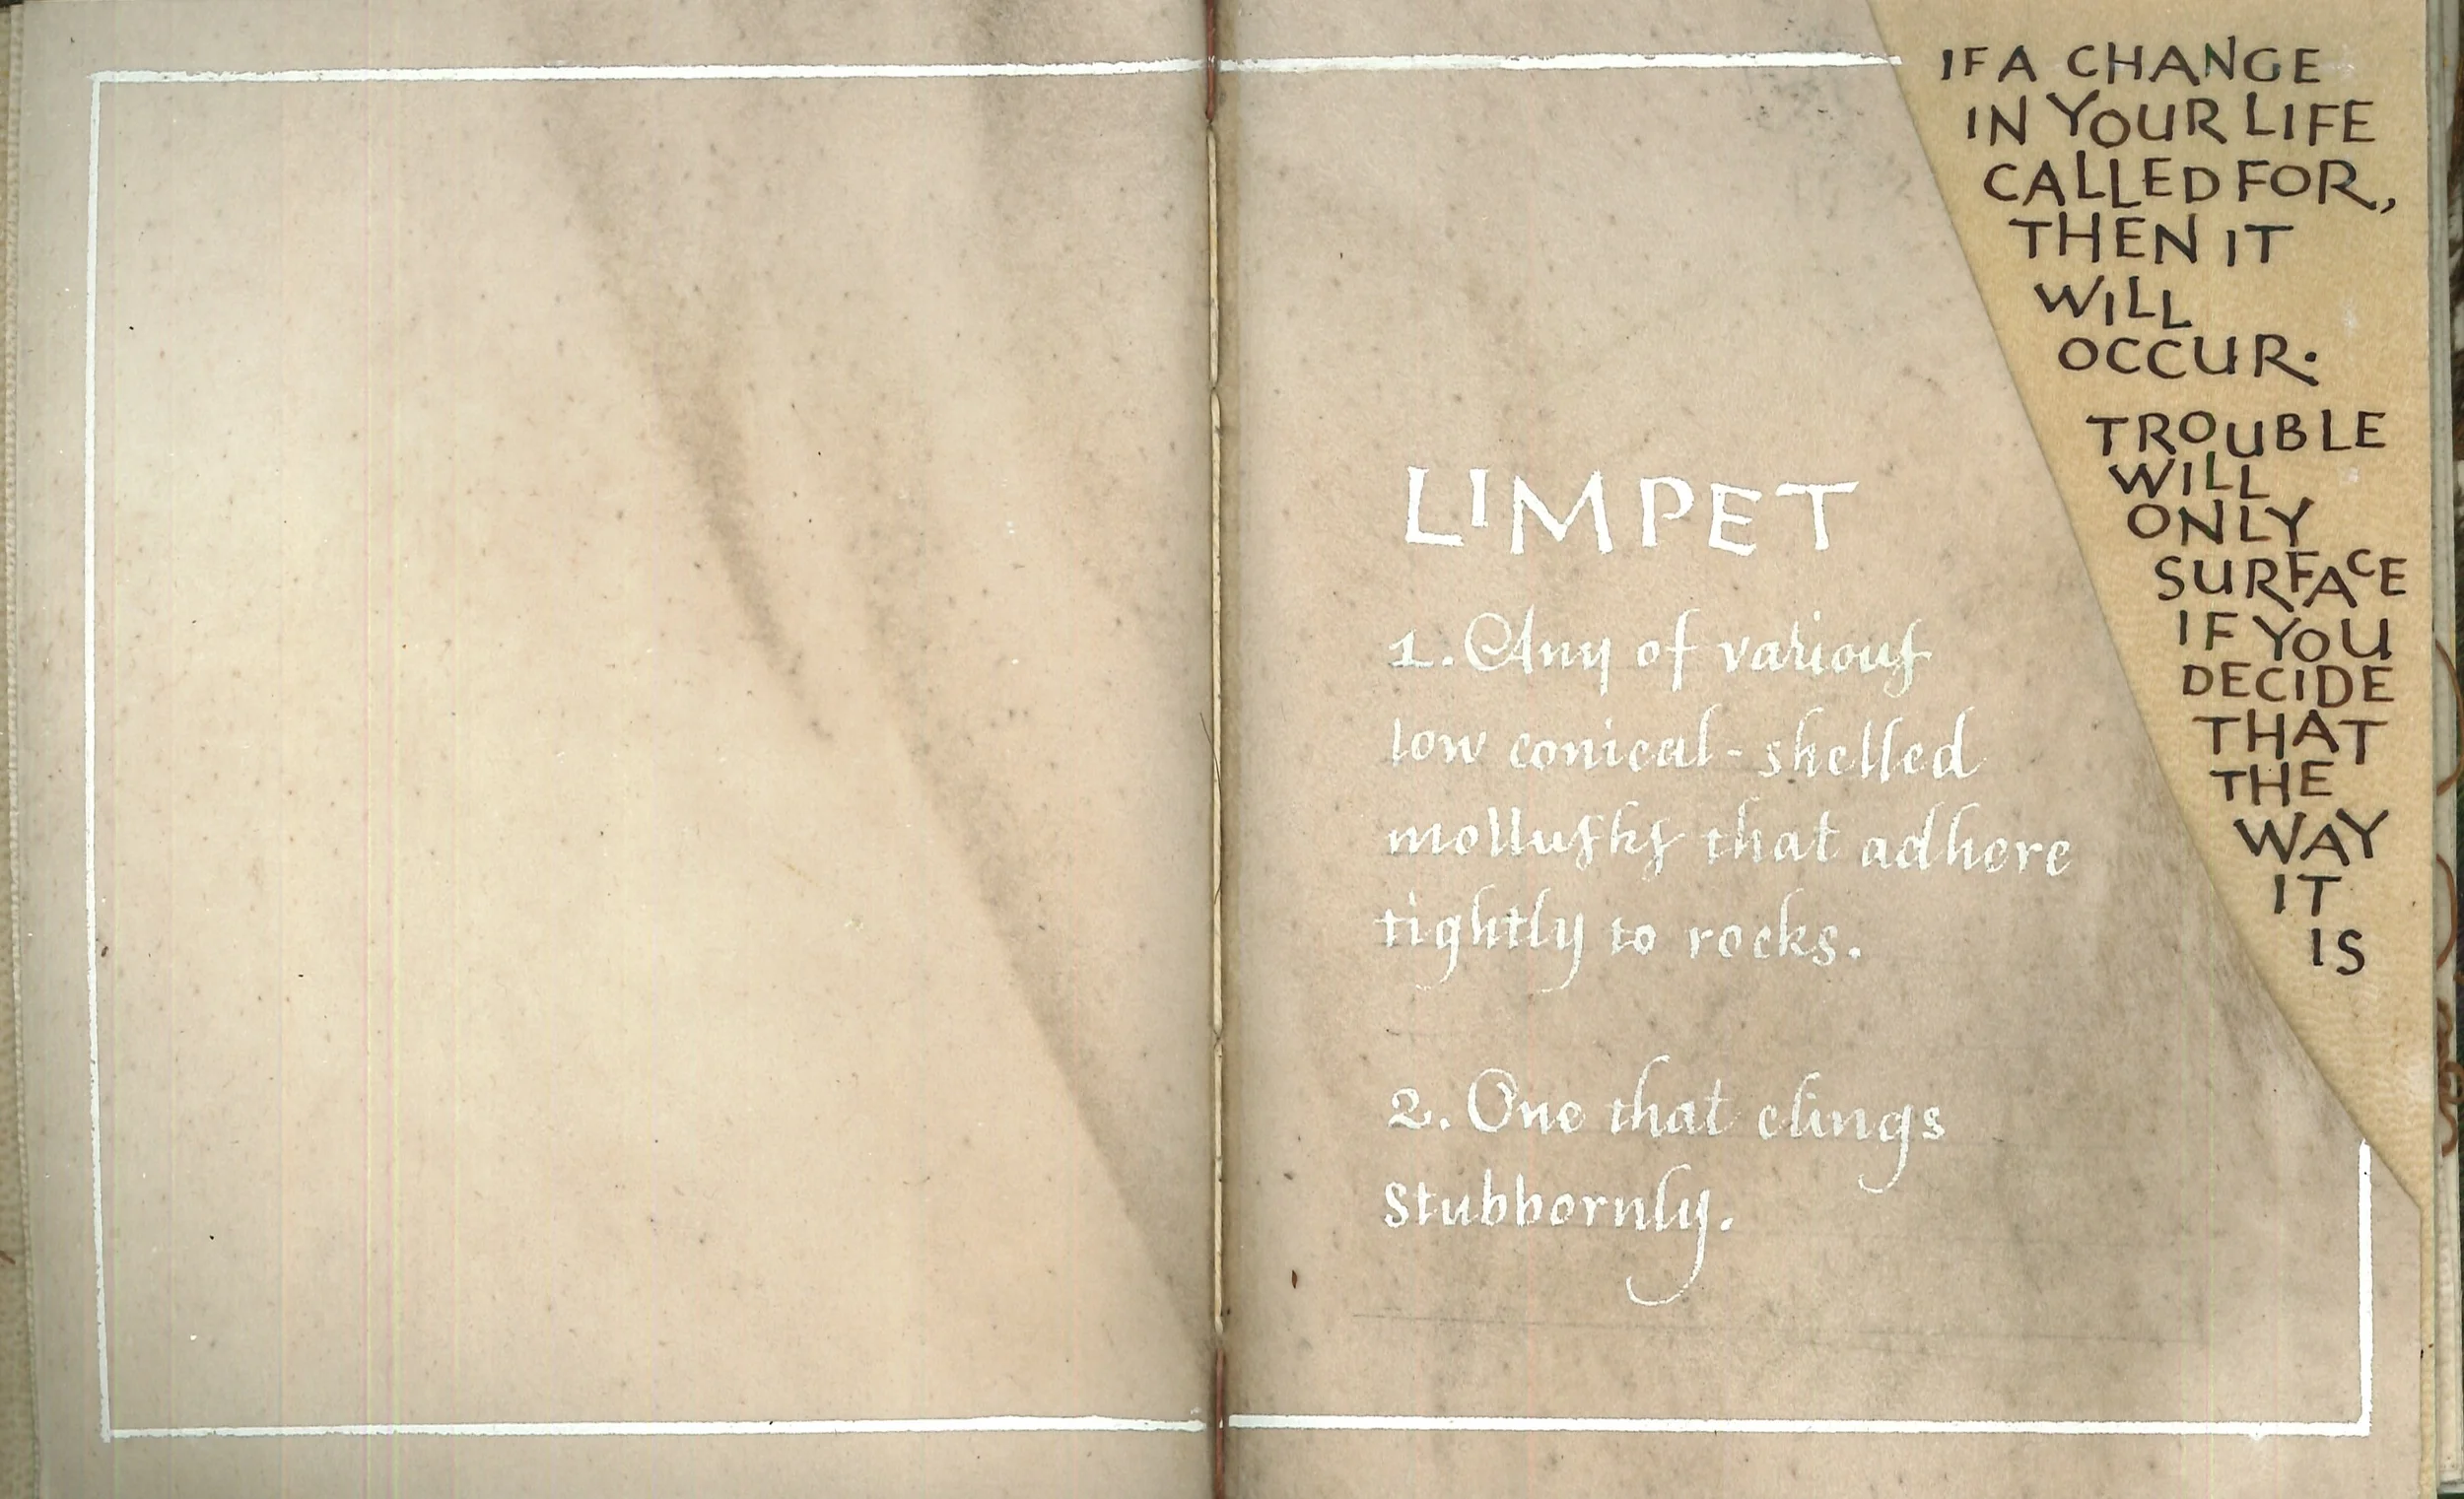 LIMPET
1. Any of various
low conical-shelled
mollusks that adhere
tightly to rocks.
2. One that clings
Stubbornly.
IF A CHANGE
IN YOUR LIFE
CALLED FOR,
THEN IT
WILL
OCCUR.
TROUBLE
WILL
ONLY
SURFACE
IF YOU
DECIDE
THAT
THE
WAY
IT
IS